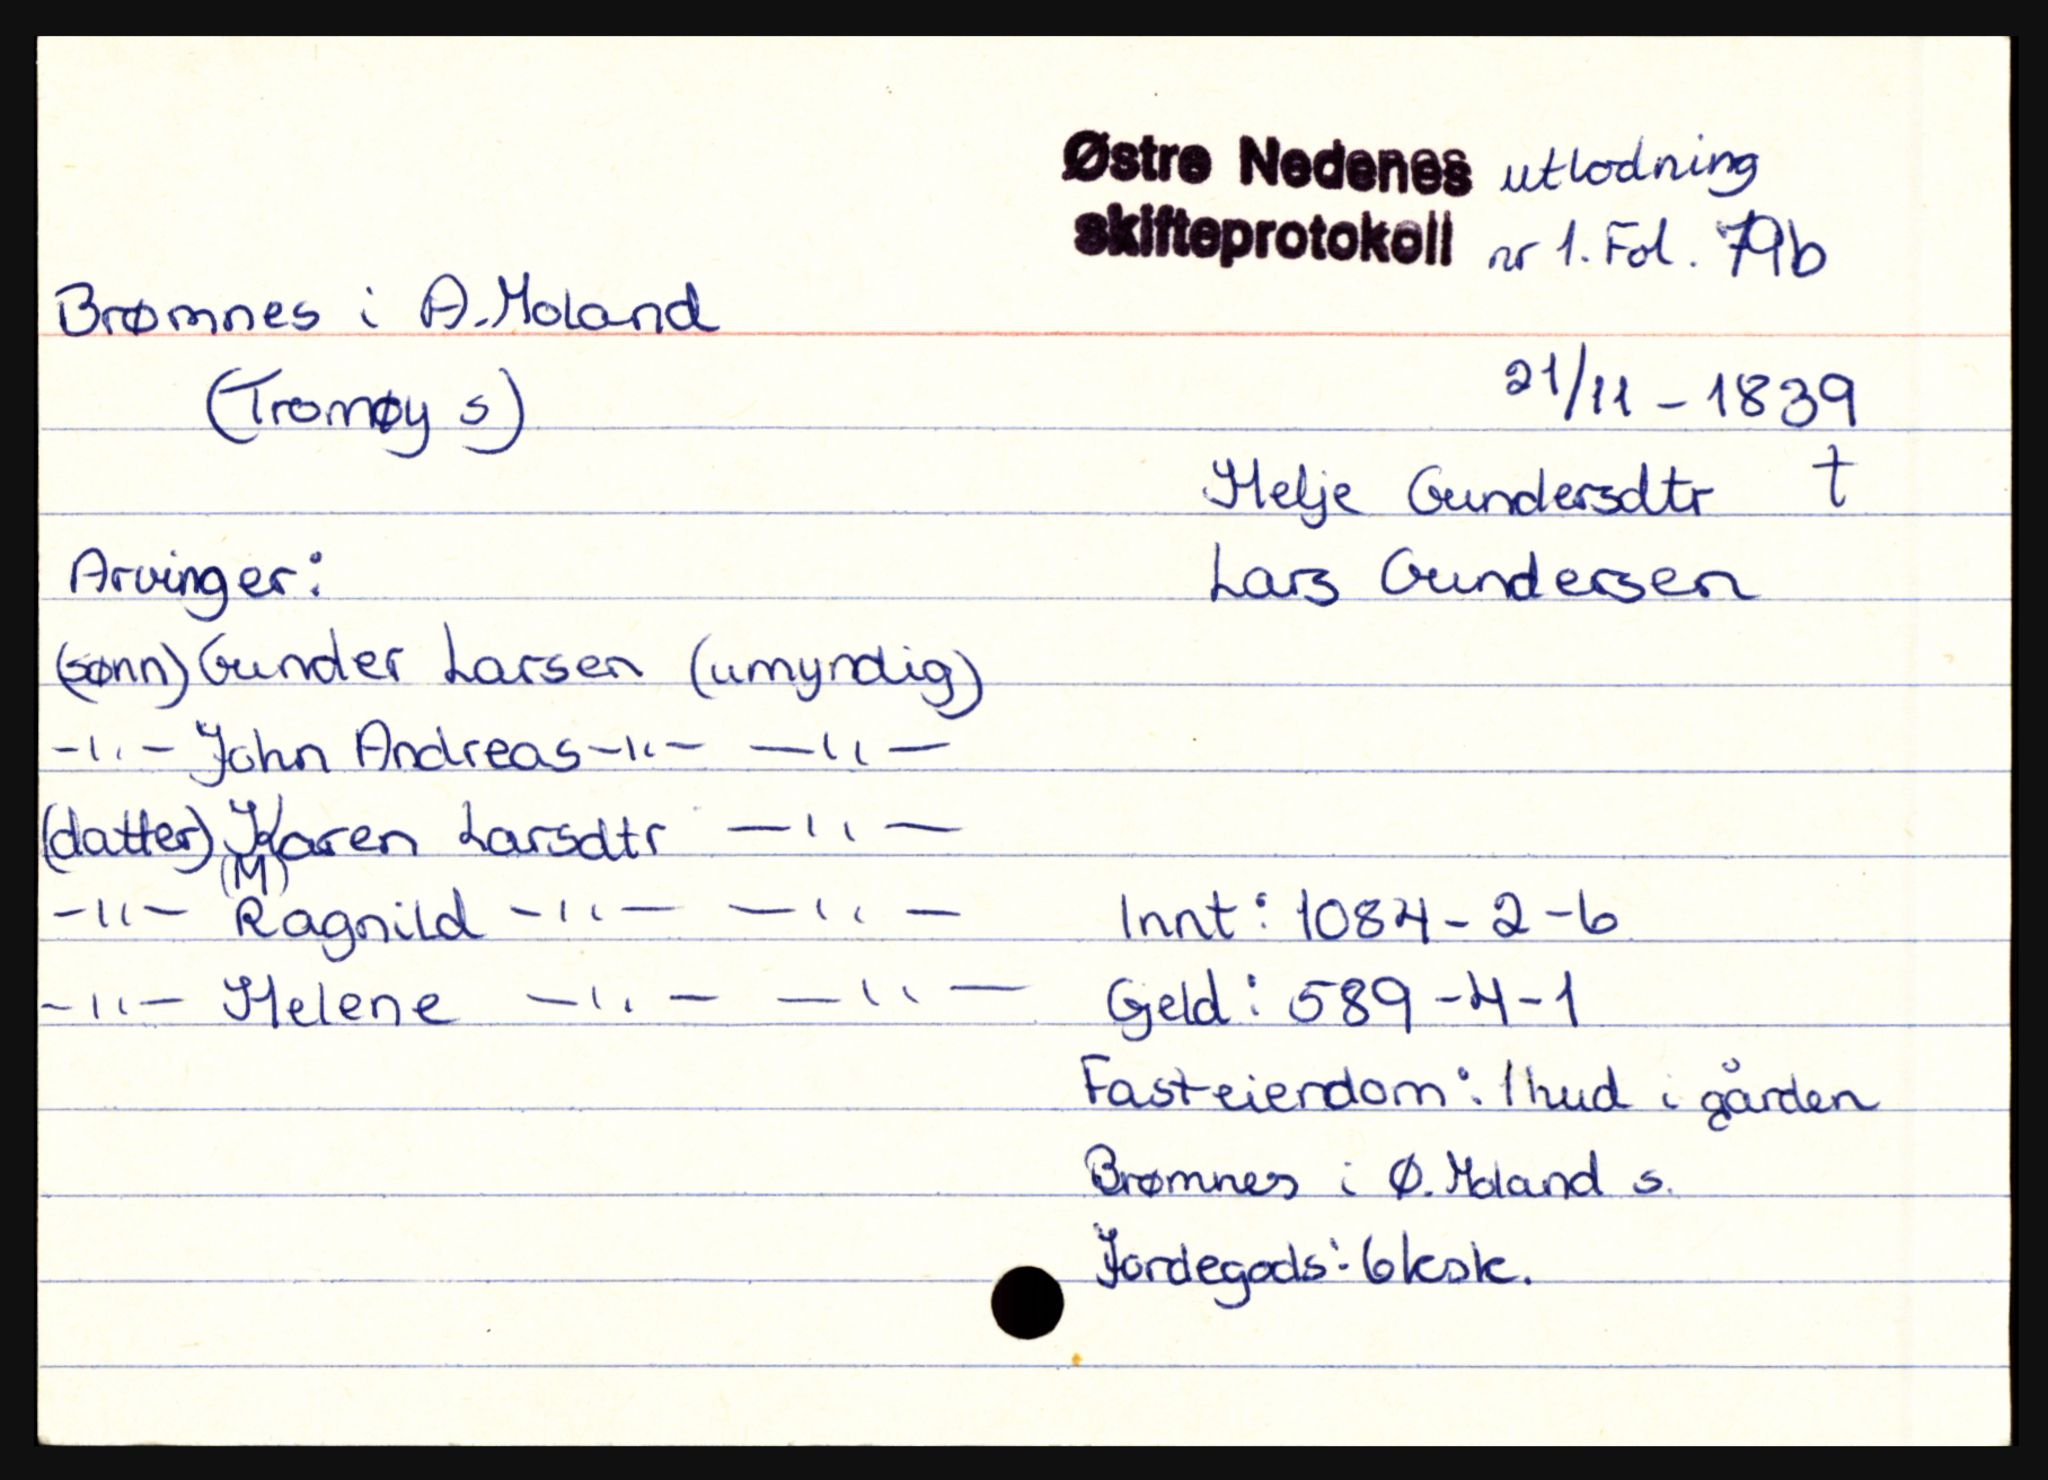 Østre Nedenes utlodning
skifteprotokoll nr 1. Fol. 79b
Brømnes i A. Moland
(Tromøy s)
21/11 - 1839
Helje Gundersdtr †
Lars Gundersen
Arvinger:
(sønn) Gunder Larsen (umyndig)
-"- John Andreas -"- -"-
(datter) Karen Larsdtr -"-
(M)
-"- Ragnild -"- -"-
-"- Helene -"- -"-
Innt: 1084 - 2 - 6
Gjeld: 589 - 4 - 1
Fasteiendom: 1 hud i gården
Brømnes i Ø. Moland s.
Jordegods: 6 ksk.